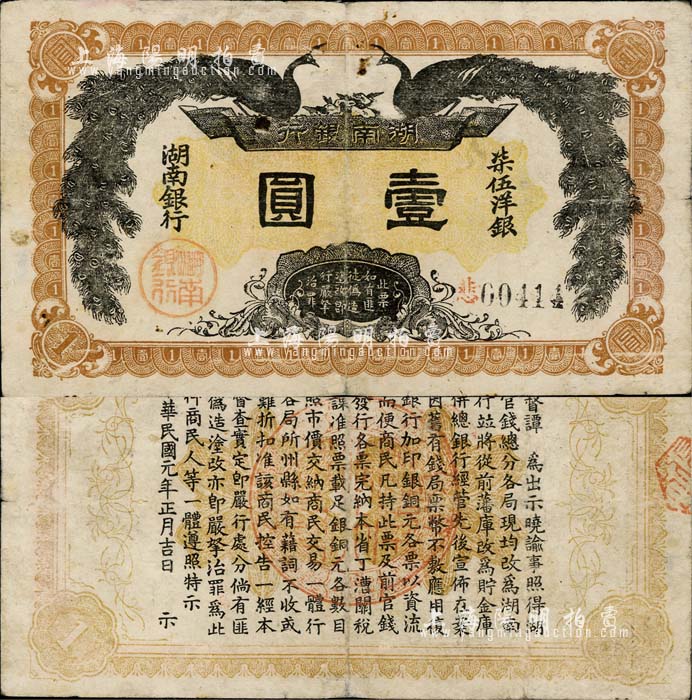 上海陽明拍賣
yangmingauction.com
湖南銀行
柒伍洋銀
壹圓
湖南銀行
湖南銀行
此票
如有匪
徒偽造
塗改即
行嚴拏
治罪
悲00414
1
上海陽明拍賣
yangmingauction.com
督譚 為出示曉諭事照得湖
官錢總分各局現均改為湖南
行竝將從前藩庫改為貯金庫
併總銀行經管先後宣佈在案
因舊有錢局票幣不敷應用復
銀行加印銀銅元各票以資流
而便商民凡持此票及前官錢
發行各票完納本省丁漕關稅
課准照票載足銀銅元各數目
照市價交納商民交易一體行
各局所州縣如有藉詞不收或
難折扣准該商民控告一經本
督查實定卽嚴行處分倘有匪
偽造塗改亦卽嚴拏治罪為此
行商民人等一體遵照特示
華民國元年正月吉日 示
上海陽明拍賣
yangmingauction.com